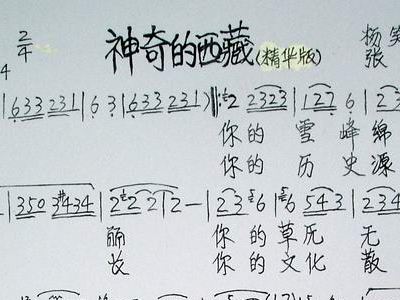 2/4 神奇的西藏(精华版) 杨笑
4 张
|633 231|6 3|633 231)‖:2 2323|127 6|23
你的 雪 峰 绵
你的 历 史 源
|350 3#434|2 2 2 2 -|2 3 6|6 543|234
丽 你 的 草 厄 无
长 你 的 文 化 散